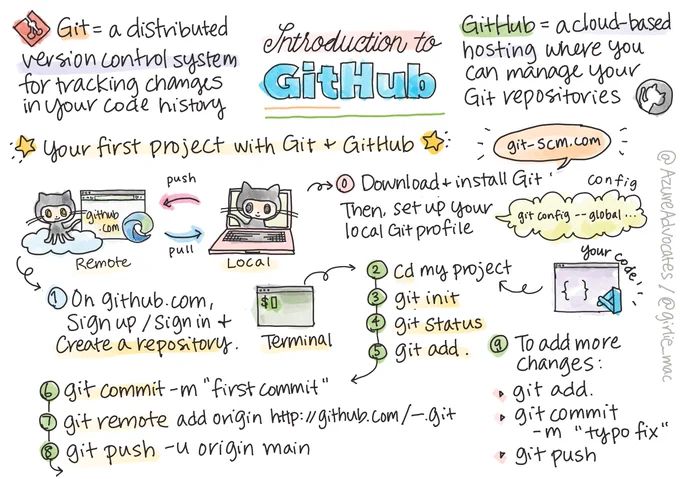 Git = a distributed
version control system
for tracking changes
in your code history
Introduction to
GitHub
GitHub = a cloud-based
hosting where you
can manage your
Git repositories
Your first project with Git + GitHub
git-scm.com
push
github
.com
pull
Remote
Local
0 Download + install Git
Then, set up your
local Git profile
config
git config --global ...
1 On github.com,
Sign up / Sign in +
Create a repository.
$
Terminal
2 Cd my project
3 git init
4 git status
5 git add .
your code
{ }
6 git commit -m "first commit"
7 git remote add origin http://github.com/—.git
8 git push -u origin main
9 To add more
changes:
git add.
git commit
-m "typo fix"
git push
@AzureAdvocates / @girlie_mac